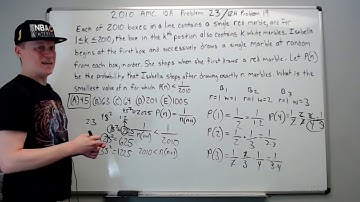 NBA
2010 AMC 10A Problem 23/12A Problem 18
Each of 2010 boxes in a line contains a single red marble, and for
1≤k≤2010, the box in the kth position also contains k white marbles. Isabella
begins at the first box and successively draws a single marble at random
from each box, in order. She stops when she first draws a red marble. Let P(n)
be the probability that Isabella stops after drawing exactly n marbles. What is the
smallest value of n for which P(n) < 1/2010
(A) 45 (B) 63 (C) 64 (D) 201 (E) 1005
P(n) = 1/n(n+1)
1/n(n+1) < 1/2010
2010 < n(n+1)
23
= 625
35² = 1225
B1 B2 B3
r=1 w=1 r=1 w=2 w=3
P(1) = 1/2 = 1/1·2
P(2) = 1/2 · 1/3 = 1/2·3
P(3) = 1/2 · 2/3 · 1/4 = 1/3·4